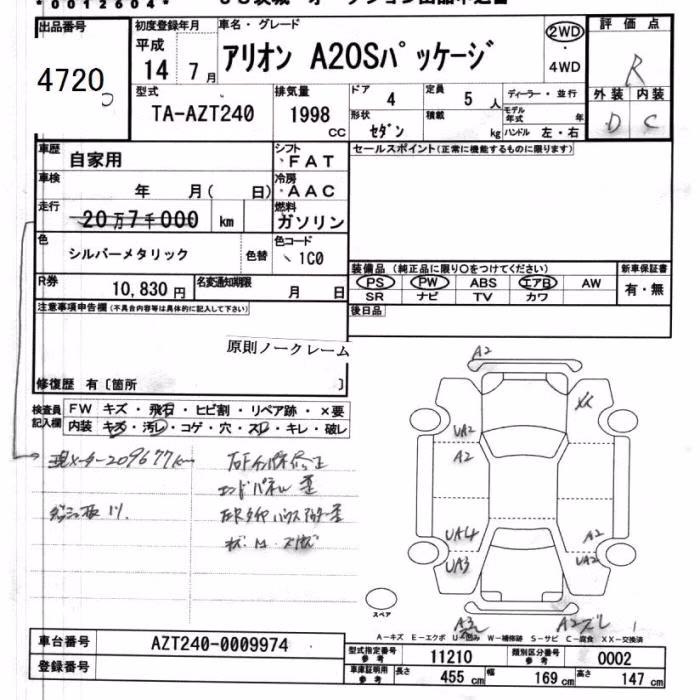 *0012604*
出品番号 初度登録年月 車名・グレード 評価点
4720 平成 14 7月 アリオン A20Sパッケージ 2WD・4WD R
型式 排気量 ドア 4 定員 5人 ディーラー・並行 外装 内装
TA-AZT240 1998 CC 形状 セダン 積載 kg モデル年式 年 D C
ハンドル 左・右
車歴 自家用 シフト FAT セールスポイント(正常に機能するものに限ります)
車検 年 月( 日) 冷房 AAC
走行 20万7千000 km 燃料 ガソリン
色 シルバーメタリック 色替 色コード 1C0
装備品 (純正品に限り○をつけてください) 新車保証書
R券 10,830円 名変通知期限 月 日 PS PW ABS エアB AW 有・無
SR ナビ TV カワ
注意事項申告欄(不具合内容等は具体的に記入して下さい) 後日品
原則ノークレーム
修復歴 有〔箇所 〕
検査員記入欄 FW キズ・飛石・ヒビ割・リペア跡・×要
内装 キズ・汚レ・コゲ・穴・スレ・キレ・破レ
現メーター209677km
エンドパネル歪
A2
XX
UA2
A2
UA4 A2
UA3 UA2
スペア
A3 A2ズレ
A-キズ E-エクボ U-凹み W-補修跡 S-サビ C-腐食 XX-交換済
車台番号 AZT240-0009974 型式指定番号 参考 11210 類別区分番号 参考 0002
登録番号 車庫証明用 参考 長さ 455cm 幅 169cm 高さ 147cm